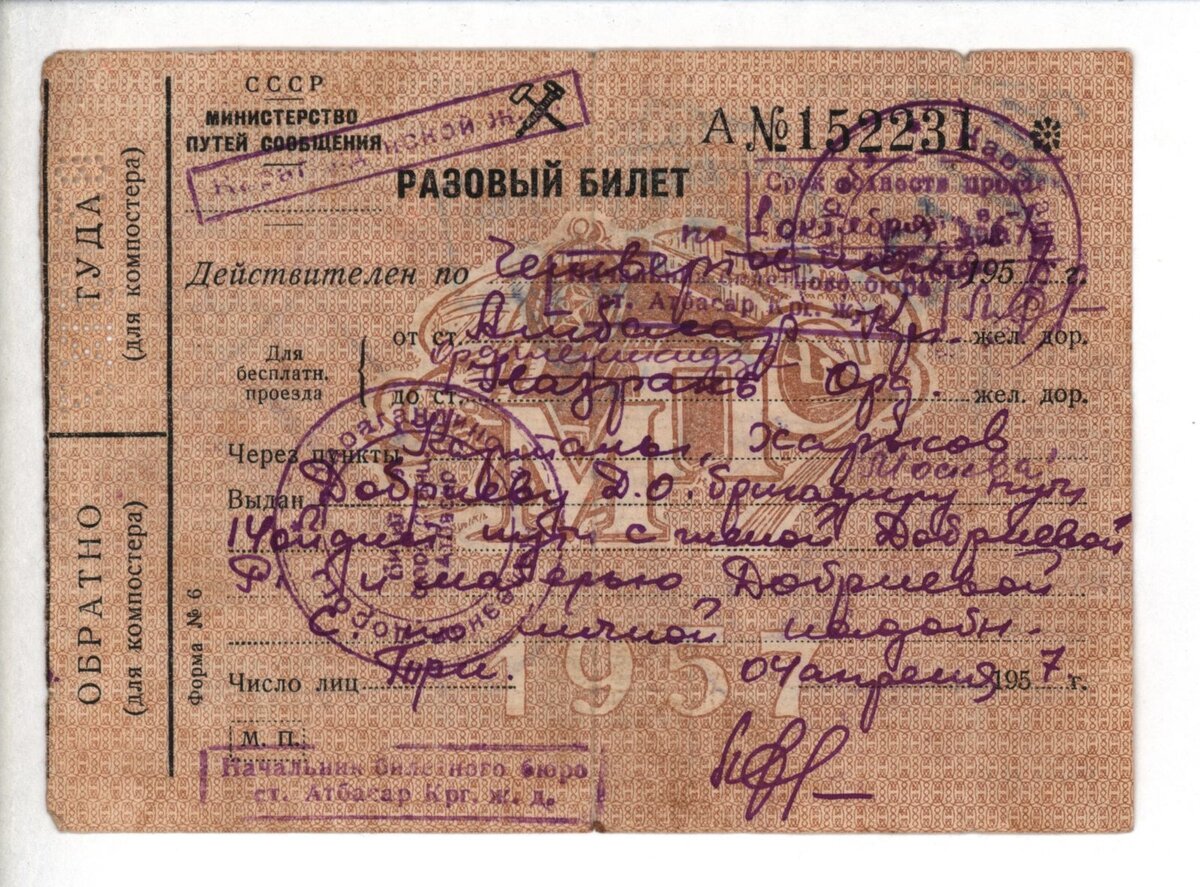 СССР
МИНИСТЕРСТВО
ПУТЕЙ СООБЩЕНИЯ
А № 152231
РАЗОВЫЙ БИЛЕТ
Срок годности
по 1 октября
Действителен по Четвертое июля 1957 г.
Для бесплатн. проезда
от ст. Атбасар Кр. жел. дор.
Орджоникидз
до ст. Назрань Орд. жел. дор.
Через пункты Карталы, Харьков
Москва,
Выдан Добриеву Д.О. бригадиру пути
14 ой дист пути с женой Добриевой
Р. и матерью Добриевой
Е. по личной надобн.
Число лиц Три. 04 апреля 1957 г.
М. П.
Начальник билетного бюро
ст. Атбасар Крг. ж. д.
Форма № 6
ТУДА
(для компостера)
ОБРАТНО
(для компостера)
билетного бюро
ст. Атбасар Крг. ж.
1957